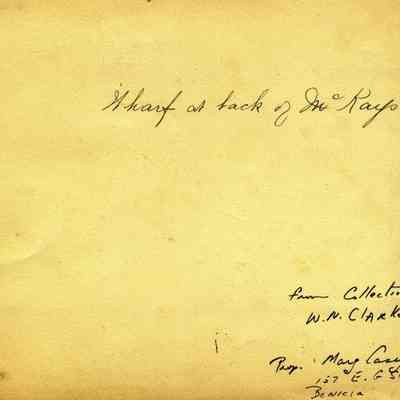 Wharf at back of McKays
From Collectio
W.N. Clark
Prop. Mary Case
157 E. G St
Benicia